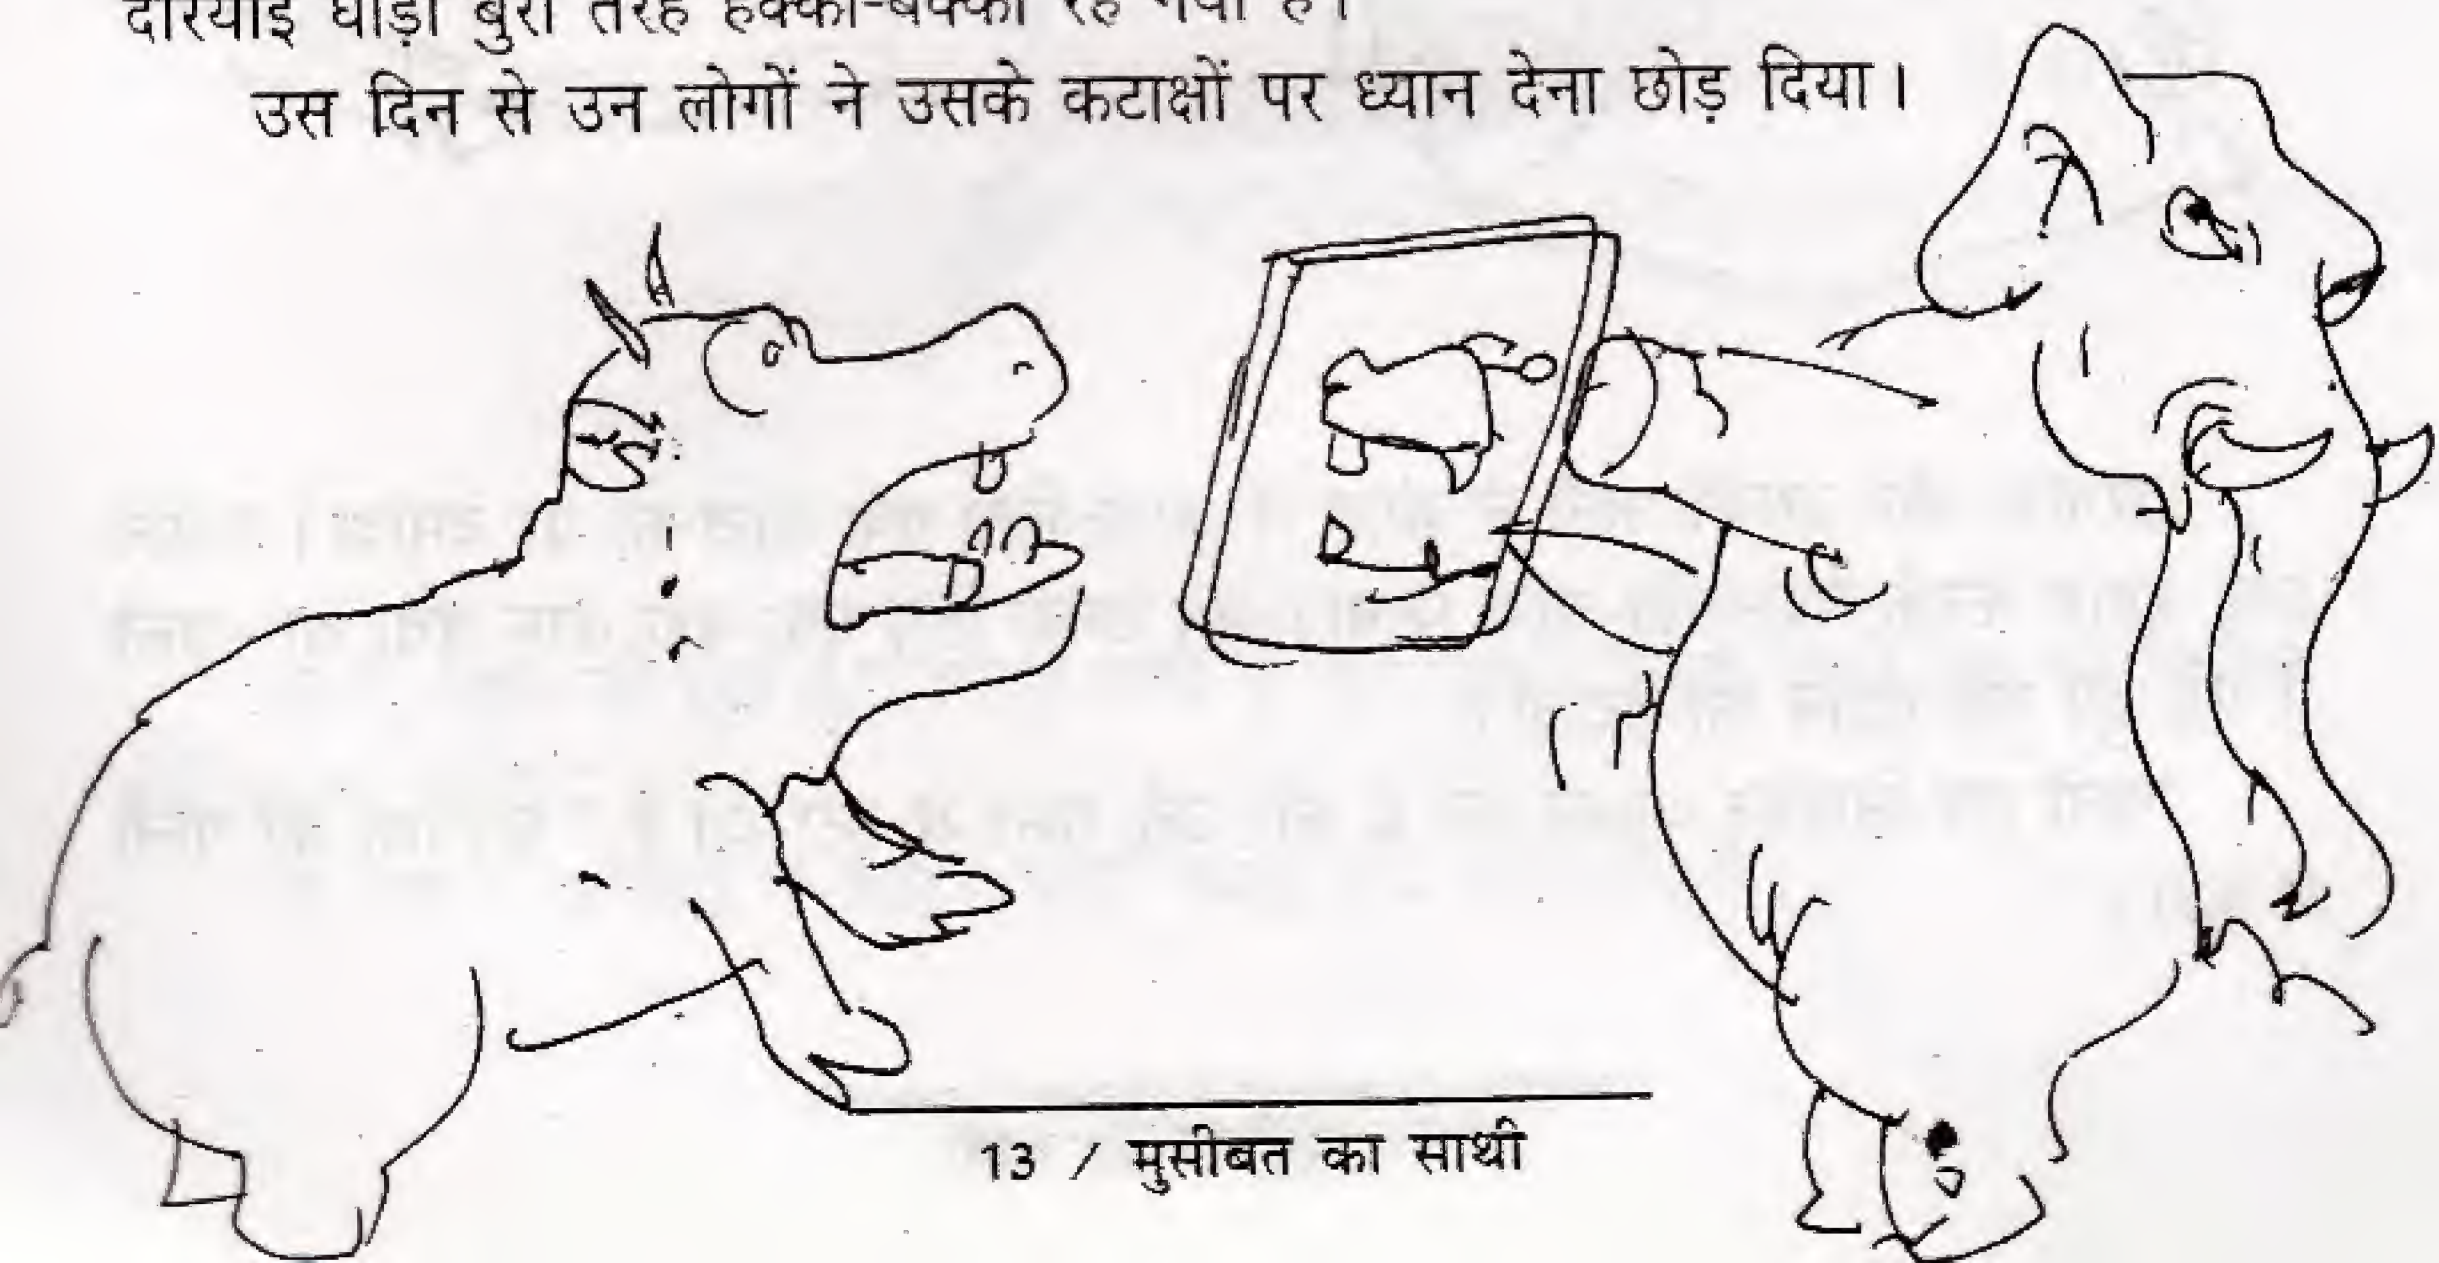 दरियाई घोड़ा बुरी तरह हक्का-बक्का रह गया है।
उस दिन से उन लोगों ने उसके कटाक्षों पर ध्यान देना छोड़ दिया।
13 / मुसीबत का साथी